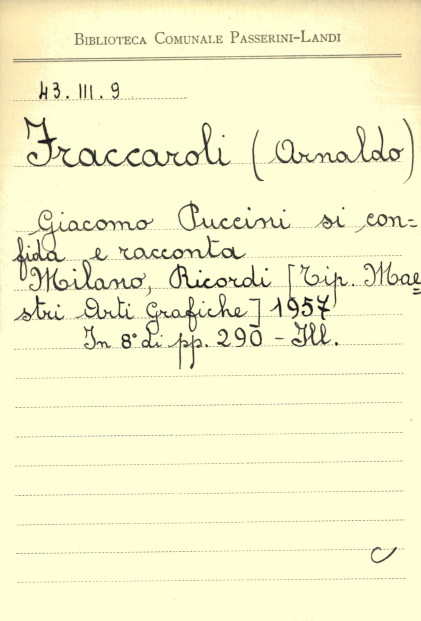 Biblioteca Comunale Passerini-Landi
43. III. 9
Fraccaroli (Arnaldo)
Giacomo Puccini si con=
fida e racconta
Milano, Ricordi [Tip. Mae=
stri Arti Grafiche] 1957
In 8° di pp. 290 - Ill.
C